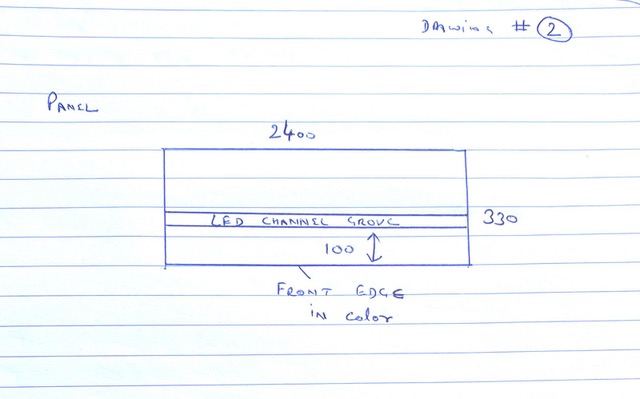 DRAWING # 2
PANEL
2400
LED CHANNEL GROVE
330
100
FRONT EDGE
IN COLOR